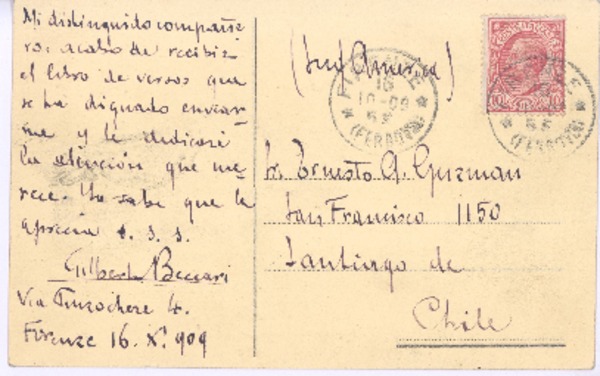 Mi distinguido compañe-
ro: acabo de recibir
el libro de versos que
se ha dignado enviar-
me y le dedicaré
la atención que me-
rece. Ya sabe que le
aprecia s. s. s.
Gilberto Beccari
Via Pinzochere 4.
Firenze 16. X. 909
(Sud America)
Sr. Ernesto A. Guzman
San Francisco 1150
Santiago de
Chile
FIRENZE
16
10-09
(FERROVIA)